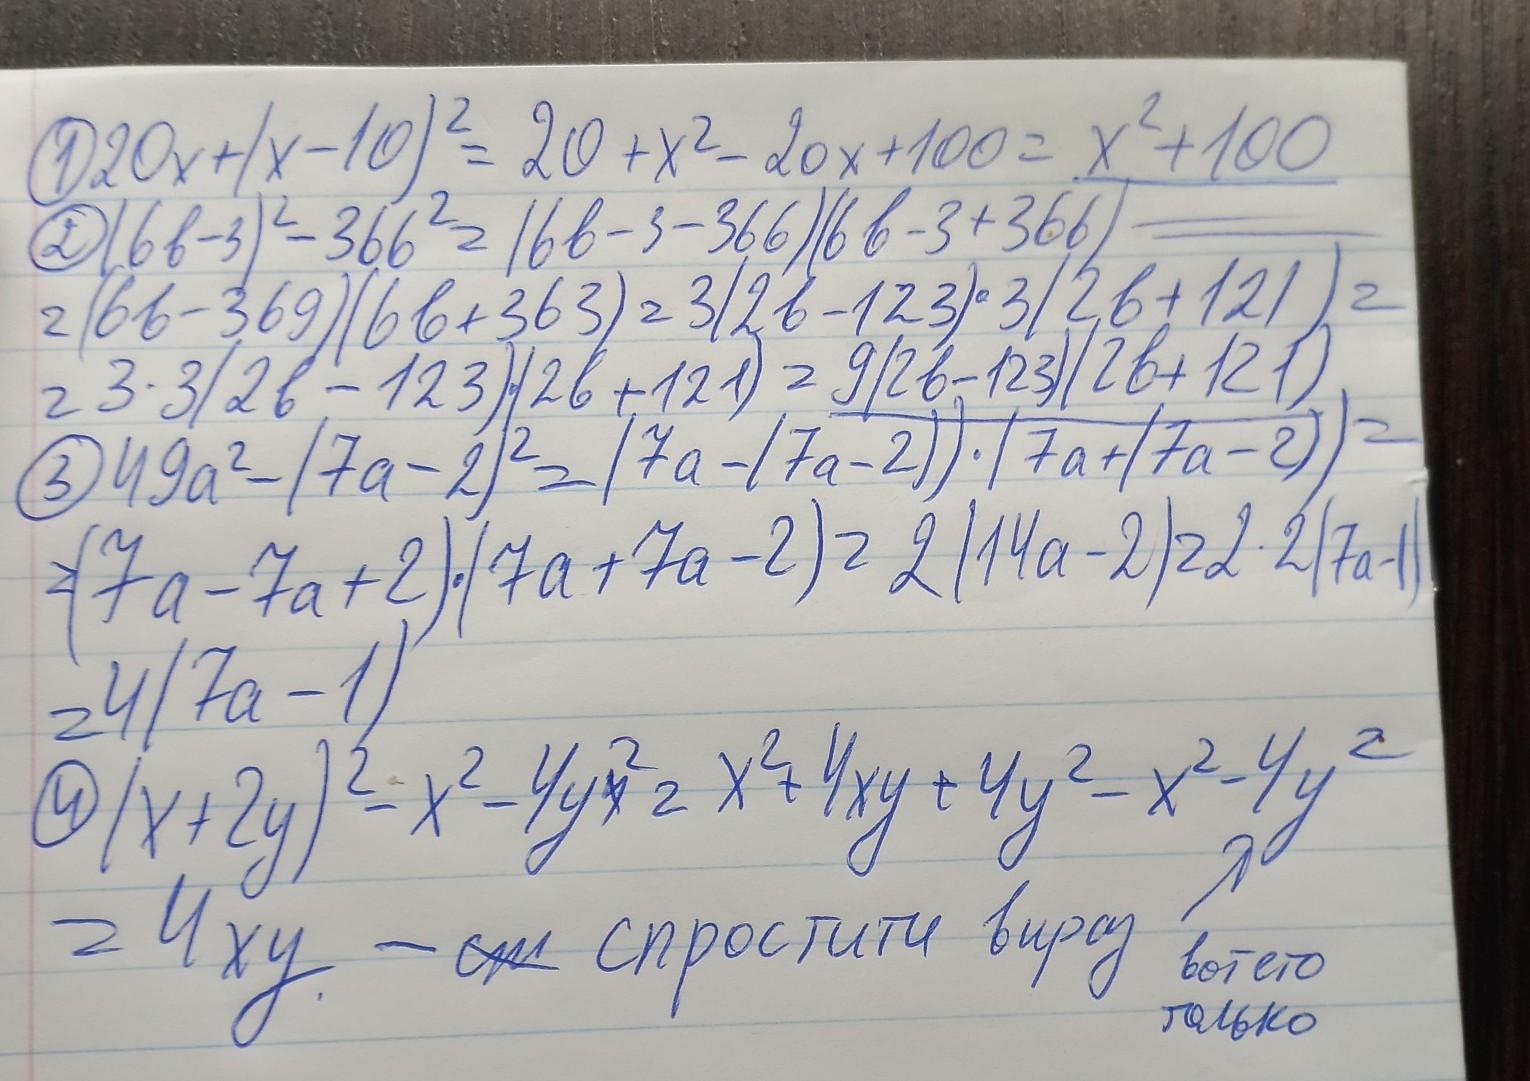 ① 20x+(x-10)²= 20+x²-20x+100= x²+100
② (6b-3)²-366²= (6b-3-366)(6b-3+366)
=(6b-369)(6b+363)=3(2b-123)·3(2b+121)=
=3·3(2b-123)·(2b+121)=9(2b-123)(2b+121)
③ 49a²-(7a-2)²=(7a-(7a-2))·(7a+(7a-2))=
=(7a-7a+2)·(7a+7a-2)=2(14a-2)=2·2(7a-1)
=4(7a-1)
④ (x+2y)²-x²-4y²=x²+4xy+4y²-x²-4y²
=4xy. - спростити вираз
вот его
только